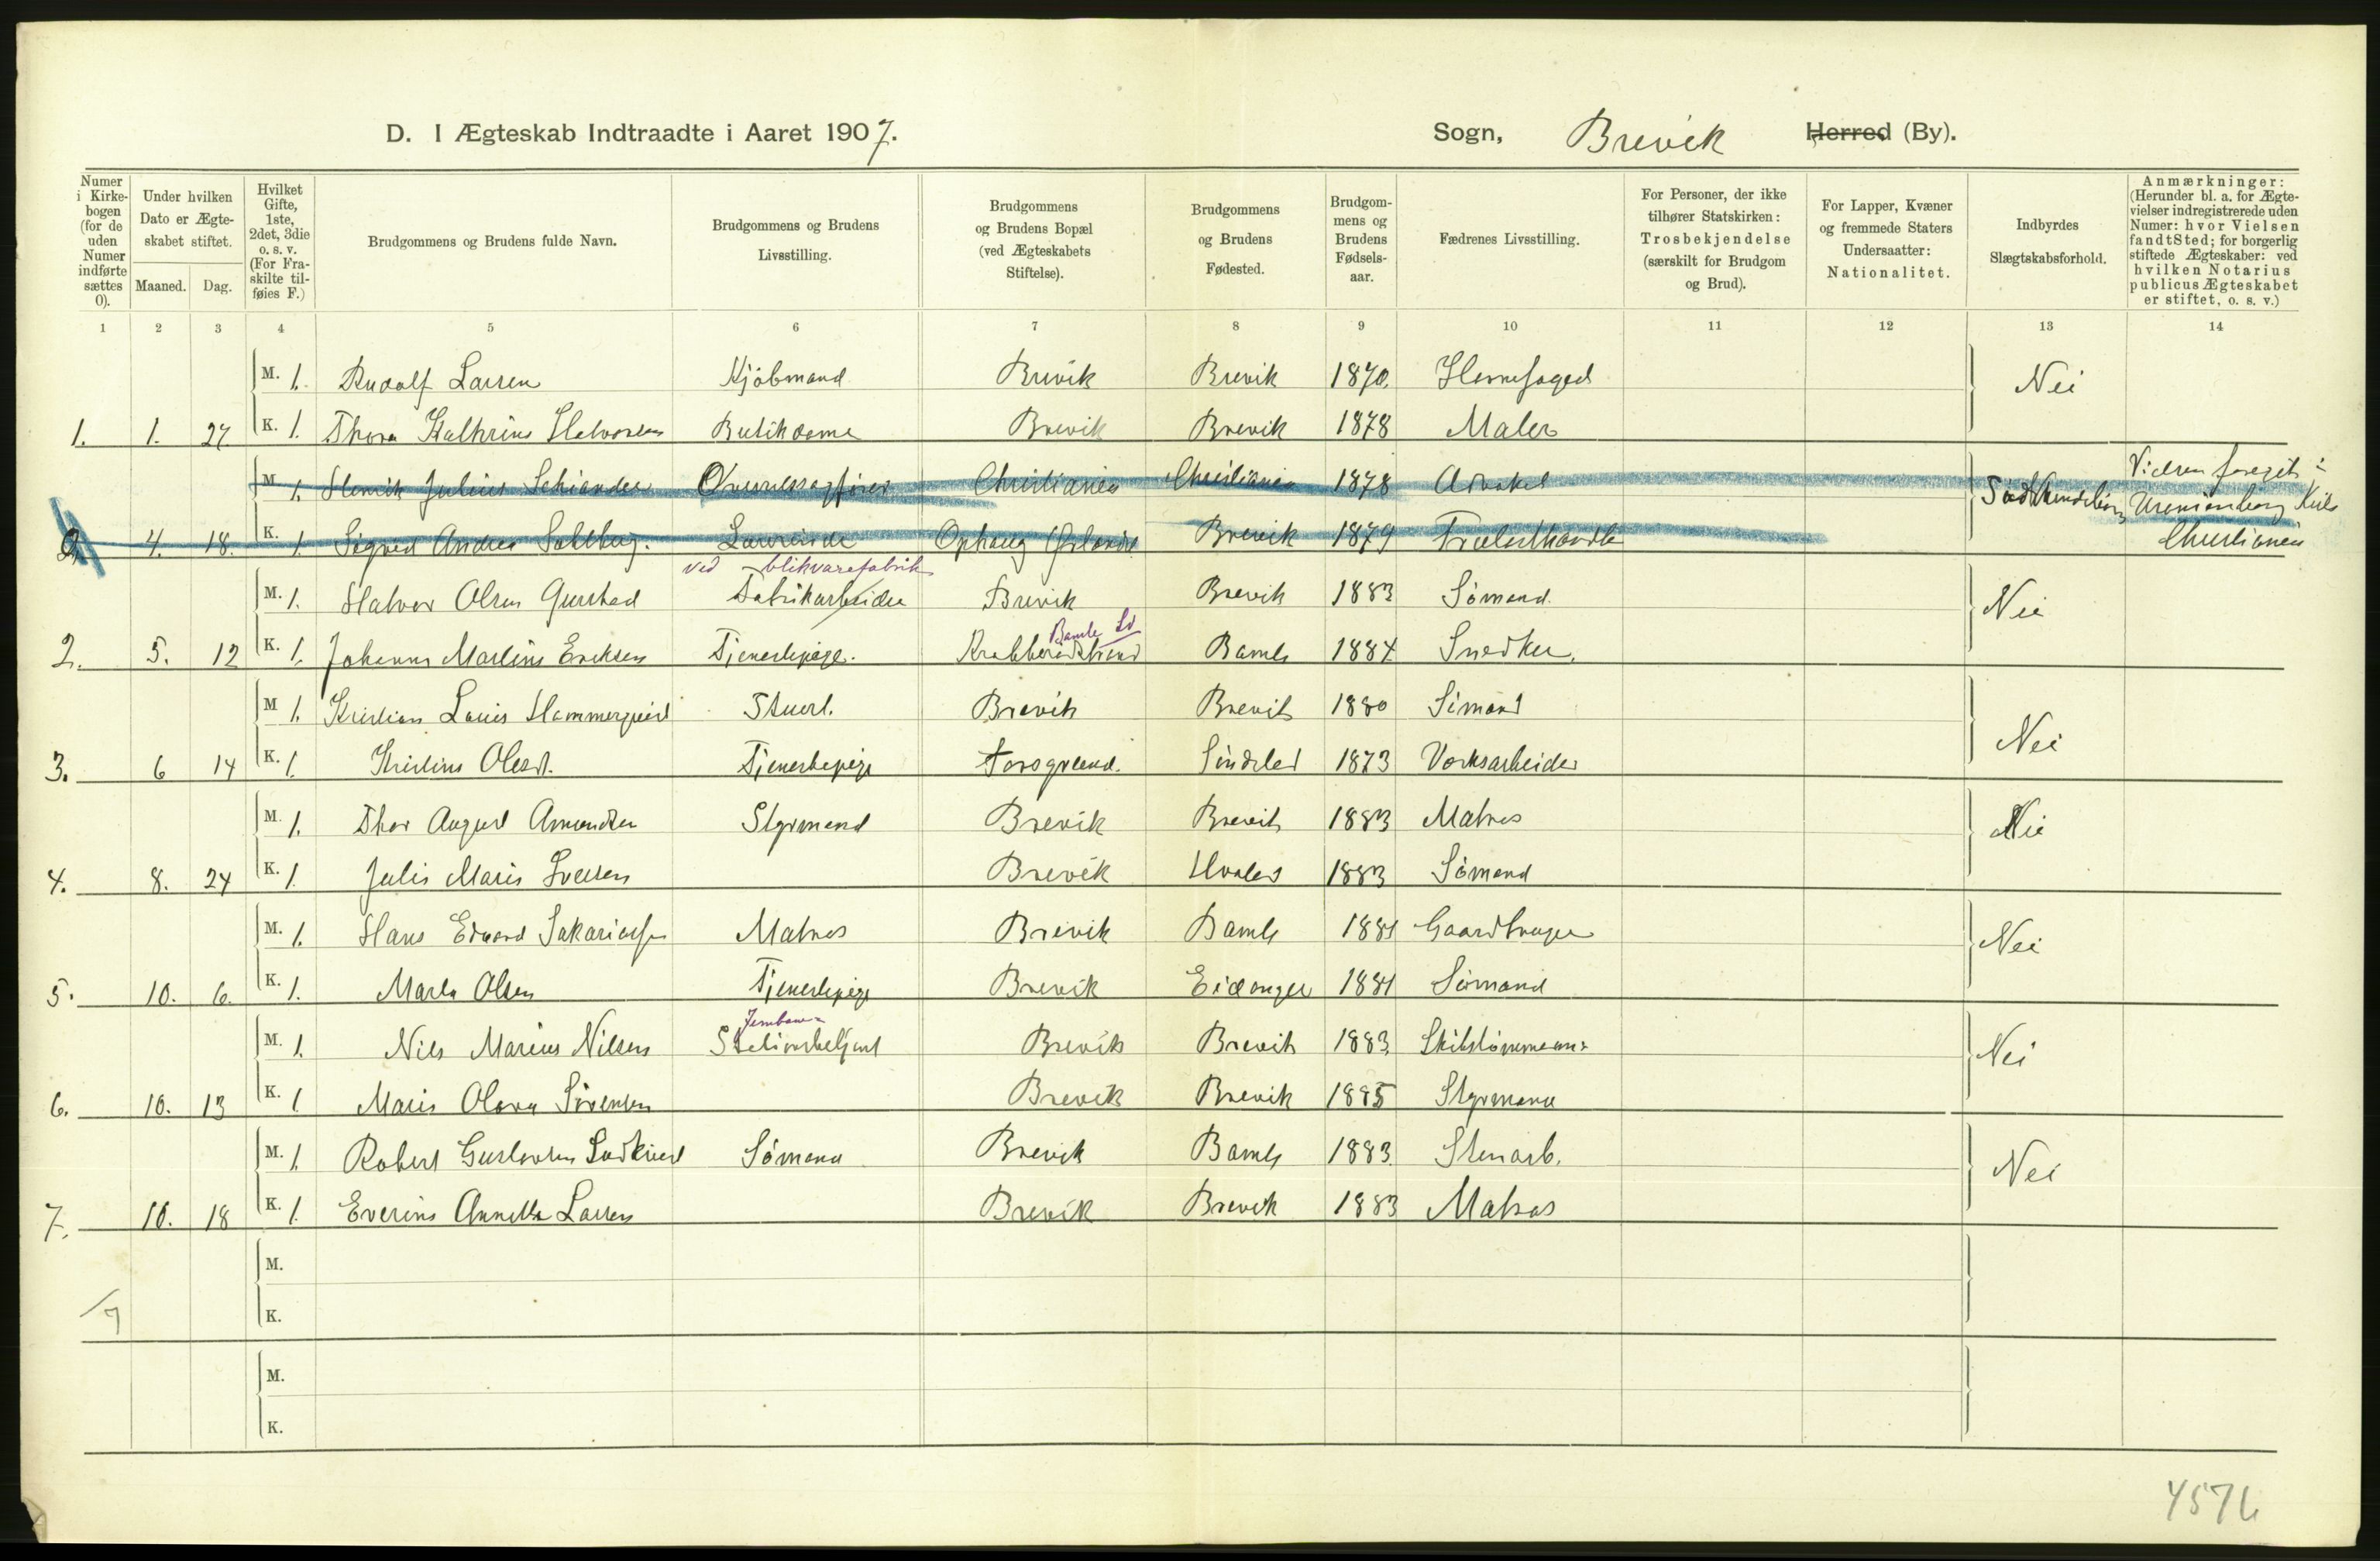 D. I Ægteskab Indtraadte i Aaret 1907. Sogn, Brevik Herred (By).
Numer i Kirkebogen (for de uden Numer indførte sættes 0).
Under hvilken Dato er Ægteskabet stiftet.
Maaned. Dag.
Hvilket Gifte, 1ste, 2det, 3die o. s. v. (For Fraskilte tilføies F.)
Brudgommens og Brudens fulde Navn.
Brudgommens og Brudens Livsstilling.
Brudgommens og Brudens Bopæl (ved Ægteskabets Stiftelse).
Brudgommens og Brudens Fødested.
Brudgommens og Brudens Fødselsaar.
Fædrenes Livsstilling.
For Personer, der ikke tilhører Statskirken: Trosbekjendelse (særskilt for Brudgom og Brud).
For Lapper, Kvæner og fremmede Staters Undersaatter: Nationalitet.
Indbyrdes Slægtskabsforhold.
Anmærkninger: (Herunder bl. a. for Ægtevielser indregistrerede uden Numer: hvor Vielsen fandt Sted; for borgerlig stiftede Ægteskaber: ved hvilken Notarius publicus Ægteskabet er stiftet, o. s. v.)
1 2 3 4 5 6 7 8 9 10 11 12 13 14
M. 1. Rudolf Larsen Kjøbmand Brevik Brevik 1870. Havnefoged Nei
1. 1. 27 K. 1. Thora Kathrine Halvorsen Butikdame Brevik Brevik 1878 Maler
M. 1. Henrik Julius Schiander Overretssagfører Christiania Christiania 1878 Advokat Vielsen foregik i
2. 4. 18. K. 1. Sigrid Andrea Ophaug Brevik 1879 Trælasthandler Uranienborg Kirke
Christiania
ved blikvarefabrik
M. 1. Halvor Olsen Fabrikarbeider Brevik Brevik 1883 Sømand. Nei
Bamle Ld
2. 5. 12 K. 1. Johanne Martine Eriksen Tjenestepige. Bamle 1884 Snedker.
M 1. Kristian Louis Stuert. Brevik Brevik 1880 Sømand Nei
3. 6 14 K. 1. Kristine Olesdt. Tjenestepige Porsgrund. Søndeled 1873 Verksarbeider
M. 1. Thor August Amundsen Styrmand Brevik Brevik 1883 Matros Nei
4. 8. 24 K. 1. Julie Marie Iversen Brevik Hvaler 1883 Sømand
M. 1. Hans Edvard Sakariassen Matros Brevik Bamle 1881 Gaardbruger Nei
5. 10. 6. K. 1. Marta Olsen Tjenestepige Brevik Eidanger 1881 Sømand
Jernbane=
M. 1. Nils Marius Nilsen Stationsbetjent Brevik Brevik 1883. Skibstømmerm: Nei
6. 10. 13 K. 1. Marie Olava Sørensen Brevik Brevik 1885 Styrmand
M. 1. Robert Gustavsen Sømand Brevik Bamle 1883. Stenarb. Nei
7. 10. 18 K. 1. Everine Annette Larsen Brevik Brevik 1883 Matros
M.
/7 K.
M.
K.